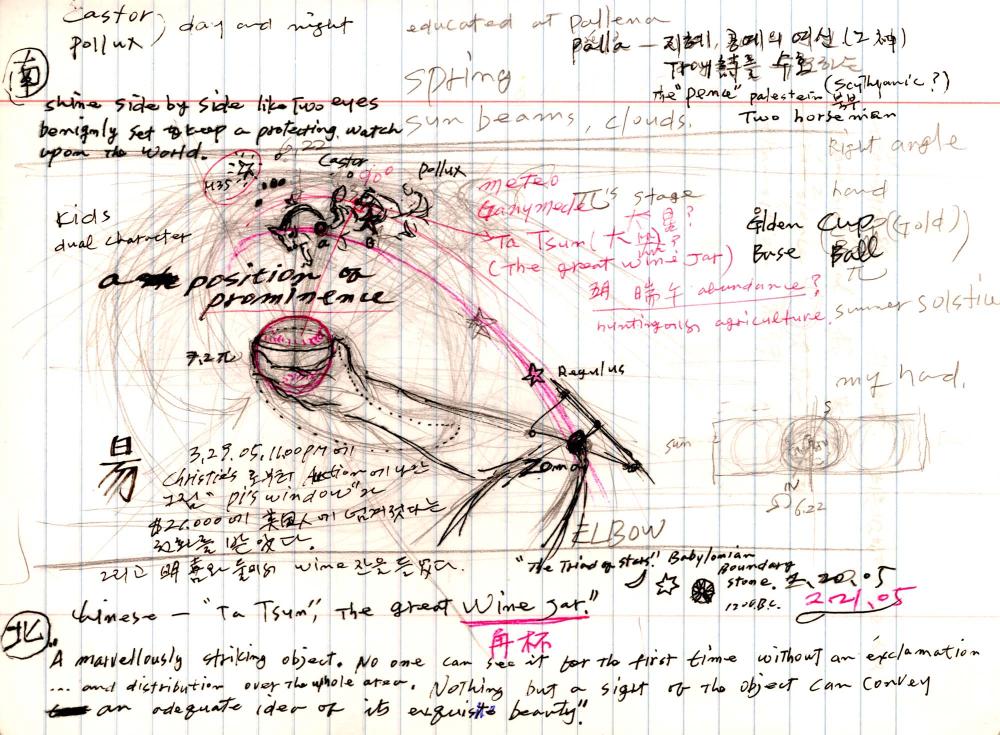 Castor, day and night
Pollux
educated at Pallena
palla — 지혜, 공예의 여신 (2神)
詩를 수호하는
The "pence" palestein (Scythyanic?)
북부.
Two horseman
南
Spring
sun beams, clouds.
shine side by side like Two eyes
benignly set to keep a protecting watch
upon the World.
6.22
M35
Castor
90°
Pollux
Right angle
hand
meteo
Ganymede
π's stage
Ta Tsum (大
(The great wine Jar)
端午 abundance?
hunting agriculture.
Glden Cup (Gold)
Base Ball
π
summer solstice
Kids
dual character
a position of
prominence
7.2π
Regulus
my hand.
sun
S
N
6.22
昜
3.29.05.11.00PM에
Christie's 로부터 Auction에 나와
그림 "pi's window"가
$26.000에 英国人에 넘겨졌다는
전화를 받았다.
그리고 明喜와 둘이서 wine 잔을 들었다.
Zomoy
ELBOW
"The Triad of stars" Babylonian
Boundary
stone.
1200B.C.
2.20.05
2.21.05
北
Chinese — "Ta Tsum", The great Wine jar."
A marvellously striking object. No one can see it for the first time without an exclamation
... and distribution over the whole area. Nothing but a sight of the object can convey
an adequate idea of its exquisite beauty."